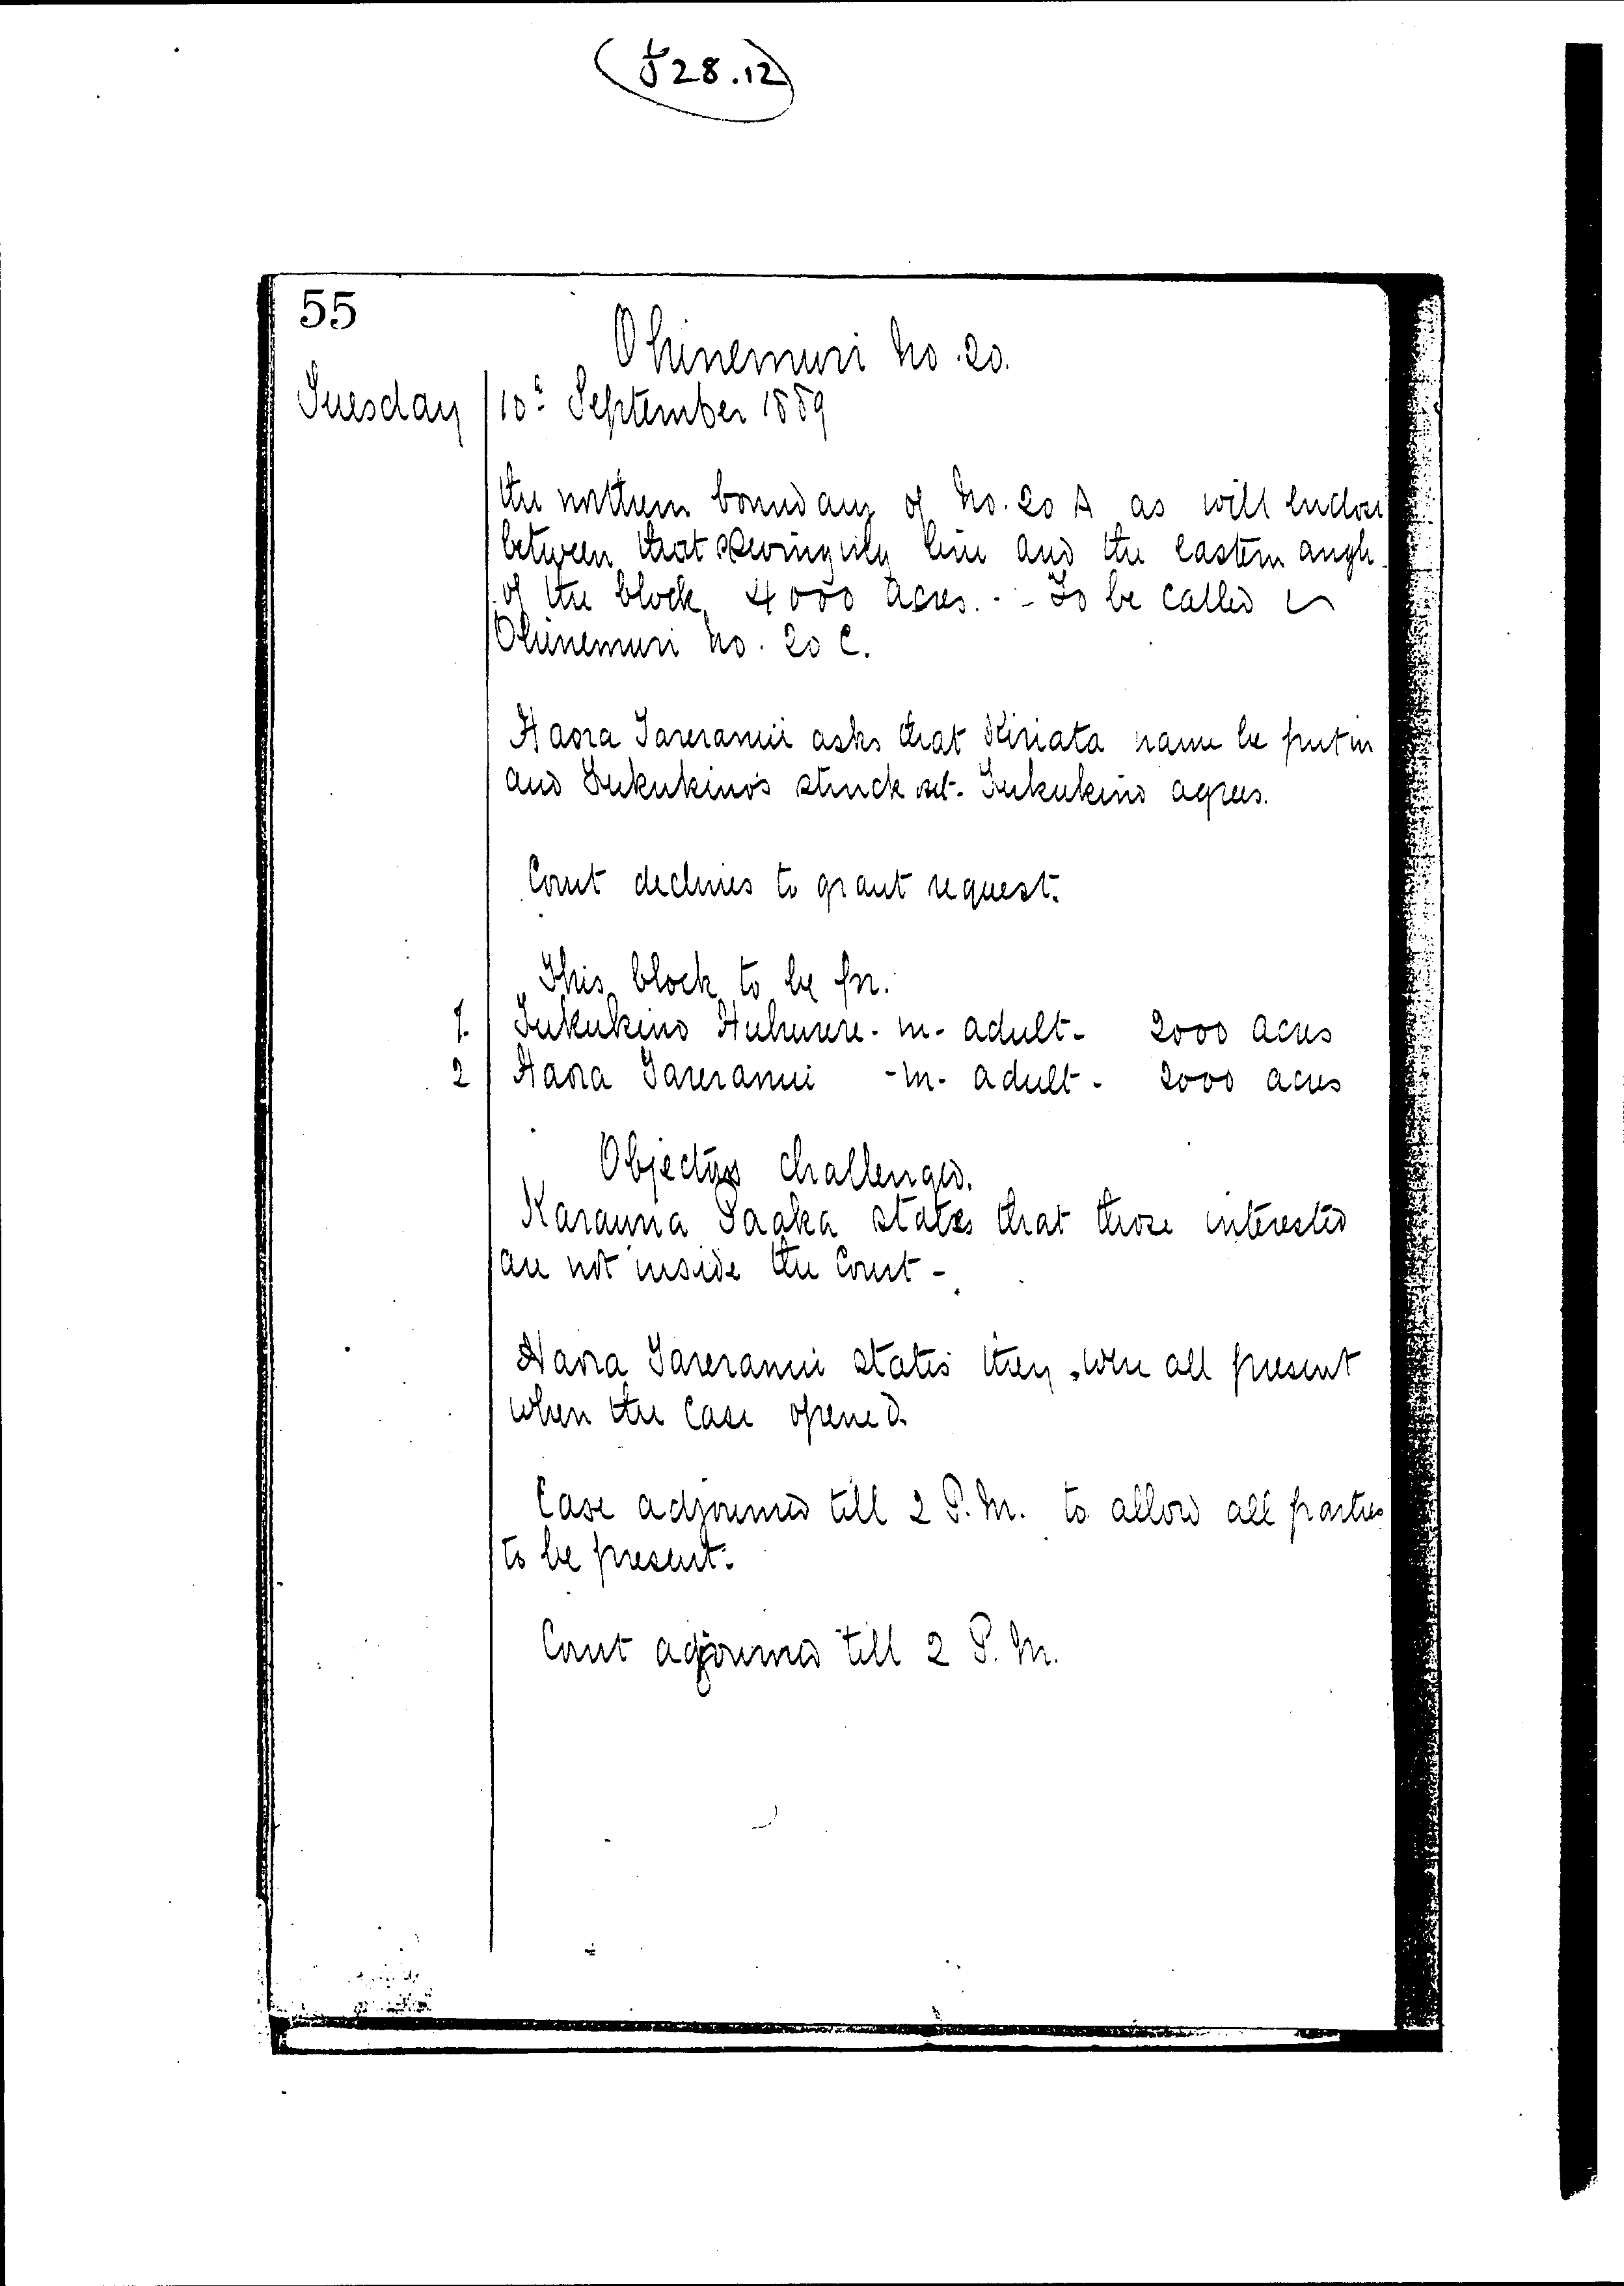 J28.12
55
Ohinemuri No. 20.
Tuesday 10th September 1889
the northern boundary of No. 20 A as will enclose
between that line and the eastern angle
of the block, 4000 acres. - To be called
Ohinemuri No. 20 C.
Haora Tareranui asks that Kiriata name be put in
and Tukukino's struck out. Tukukino agrees.
Court declines to grant request.
This block to be for.
1. Tukukino - m - adult - 2000 acres
2 Haora Tareranui - m - adult - 2000 acres
Objectors challenged.
Karauna Paaka states that those interested
are not inside the Court -
Haora Tareranui states they were all present
when the case opened.
Case adjourned till 2 P.M. to allow all parties
to be present.
Court adjourned till 2 P.M.